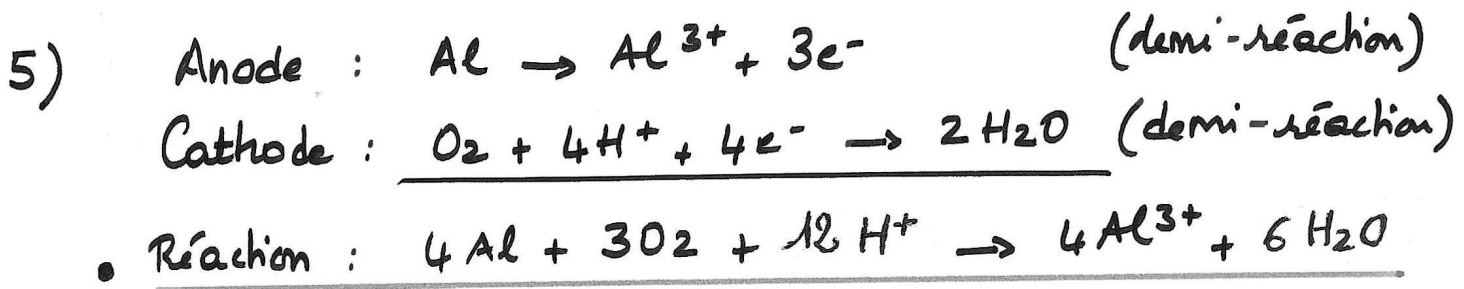 5) Anode : Al → Al³⁺ + 3e⁻ (demi-réaction)
Cathode : O₂ + 4H⁺ + 4e⁻ → 2H₂O (demi-réaction)
• Réaction : 4Al + 3O₂ + 12H⁺ → 4Al³⁺ + 6H₂O